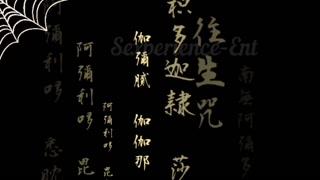 往生咒
枳多迦隸
莎
南無阿彌多
伽彌膩 伽伽那
阿彌利哆
毘
阿彌利哆 毘
彌利哆 悉耽
Sexperience-Ent